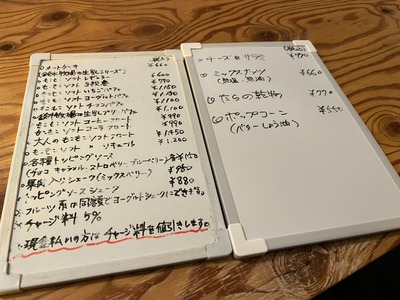 (税込)
ホットケーキ ¥660
¥660
¥770
もこもこ ソフト いちごパフェ ¥1.150
もこもこ ソフト ヨーグルトパフェ ¥1.150
¥1.100
もこもこ ソフト チョコパフェ ¥1.100
¥990
もこもこ ソフト コーヒーフロート ¥990
もこもこ ソフト コーラフロート
大人のもこもこソフトフロート ¥1.450
もこもこ ソフト × リキュール ¥1.200
各種トッピングソース ¥150
(チョコ キャラメル ストロベリー ブルーベリー)
果肉入りシェーク(ミックスベリー)
トッピングソース シェーク ¥880
フルーツ系は同額でヨーグルトシェークにできます。
チャージ料 5%
現金払いの方は チャージ料を値引きします。
(税込)
チーズ & サラミ ¥990
ミックスナッツ ¥660
(無塩・無油)
たらの乾物 ¥770
ポップコーン ¥550
(バターしょうゆ)